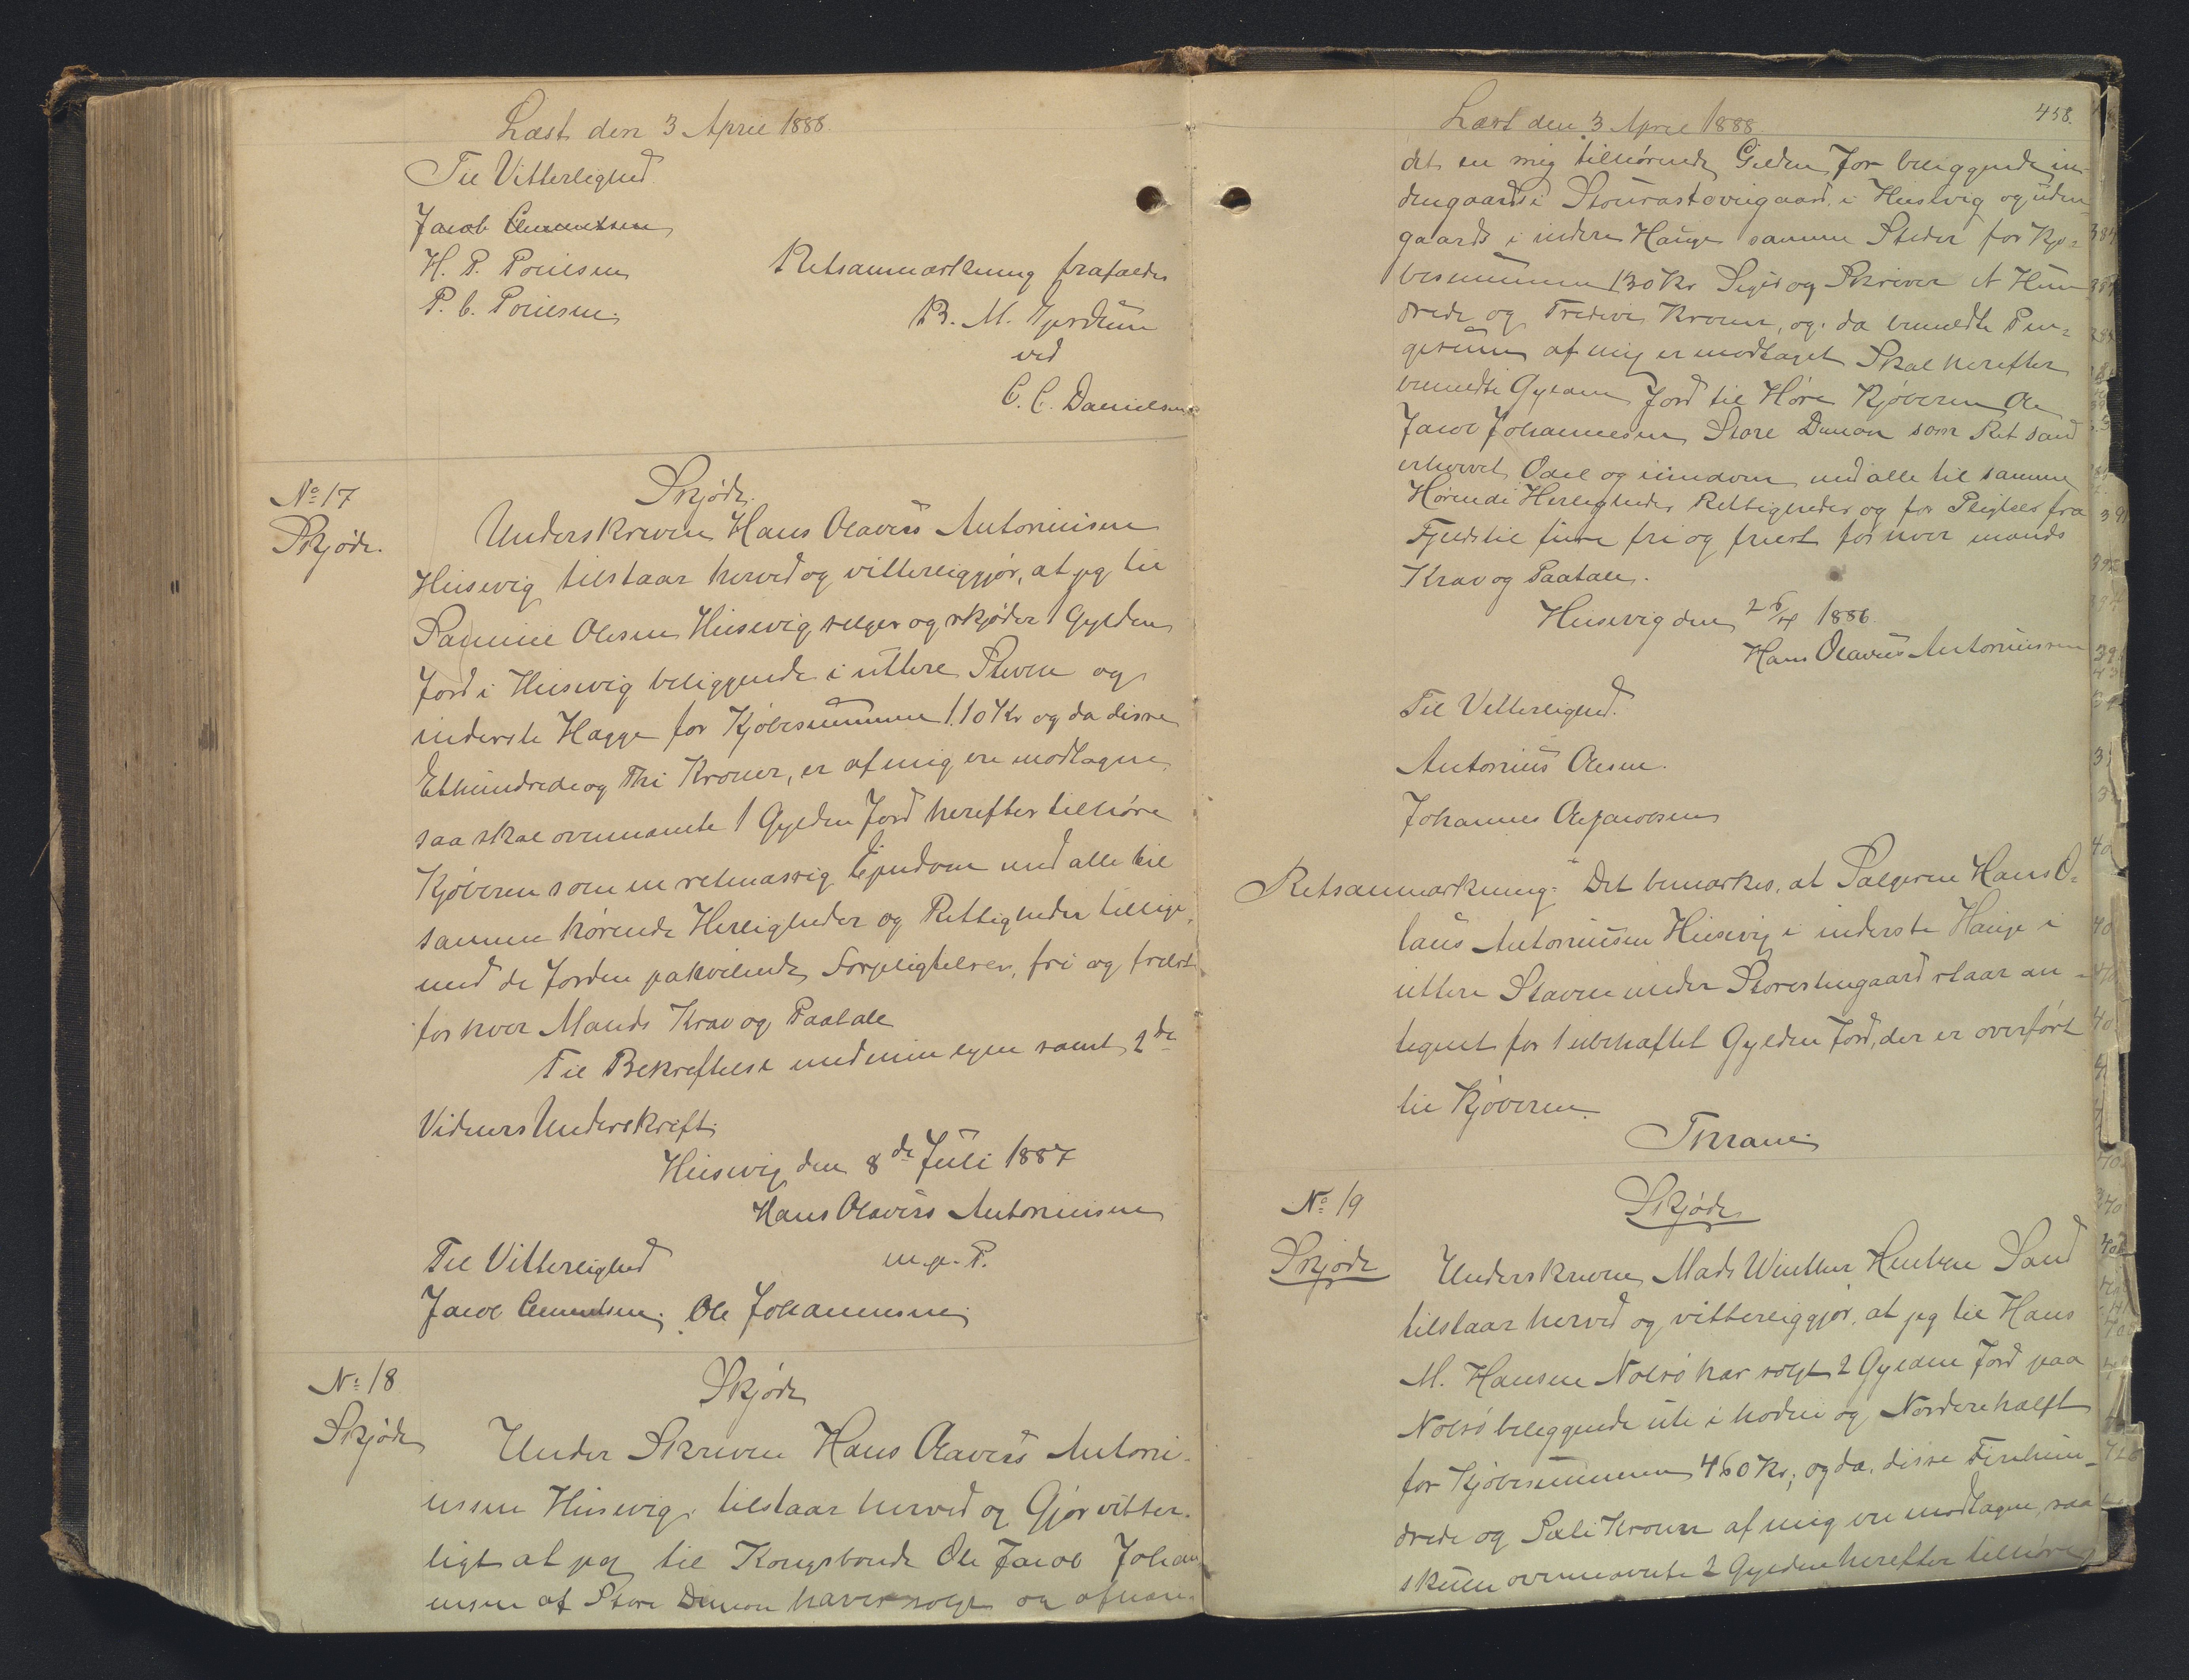 Læst den 3 April 1888.
Til Vitterlighed
Jacob Clementsen
H. P. Poulsen
P. C. Poulsen.
Retsanmærkning frafaldes
B. M. Gjerdum
ved
C. C. Danielsen
No 17
Skjøde.
Skjøde.
Underskreven Hans Olavius Antoniusen
Husevig tilstaar herved og vitterliggjør, at jeg til
Samuel Olesen Husevig sælger og skjøder 1 Gylden
Jord i Husevig beliggende i uttere Steven og
inderste Hagge for Kjøbesummen 110 Kr og da disse
Ethundrede og Thi Kroner, er af mig ere modtagne,
saa skal ovennævnte 1 Gylden Jord herefter tilhøre
Kjøberen som en retmæssig Ejendom med alle til
samme hørende Herligheder og Rettigheder tillige
med de Jorden pahvilende Forpligtelser, fri og frelst
for hver Mands Krav og Paatale
Til Bekræftelse med min egen samt 2de
Vidners Underskrift.
Husevig den 8de Juli 1887
Hans Olavius Antoniusen
m. p. P.
Til Vitterlighed
Jacob Clementsen. Ole Johannesen.
No 18
Skjøde
Skjøde
Under Skreven Hans Olavius Antoni-
ussen Husevig, tilstaar herved og Gjør vitter-
ligt at jeg til Kongsbonde Ole Jacob Johan
nesen af Store Dimon haver solgt og afhæn-
Læst den 3 April 1888.
458.
det en mig tilhørende Gylden Jor beliggende in-
dengaards i Stourastovugaard i Husevig og uden
gaards i indere Hauge samme Steder for Kjø-
besummen 130 Kr Siger og Skriver et Hun
drede og Tredive Kroner, og da bemeldte Pen-
gesum af mig er modtaget Skal herefter
bemeldte Gylden Jord til Høre Kjøberen Ole
Jacob Johannesen Store Dimon som Ret sand
erhvervet Odel og eiendom med alle til samme
Hørende Herligheder Rettigheder og for Pligtelser fra
Fjelds til fire fri og frelst for hver mands
Krav og Paatale.
Husevig den 26/4 1886.
Hans Olavius Antoniussen
Til Vitterlighed.
Antonius Olesen.
Johannes Olejacobsen
Retsanmærkning: Det bemærkes, at Sælgeren Hans O-
laus Antoniusen Husevig i inderste Hauge i
uttere Staven under Storestuegaard staar an-
tegnet for 1 ubehæftet Gylden Jord, der er overført
til Kjøberen.
Thrane
No 19
Skjøde
Skjøde
Underskreven Mads Winther Hentze Sand
tilstaar herved og vitterliggjør, at jeg til Hans
M. Hansen Nolsø har solgt 2 Gylden Jord paa
Nolsø beleggende ute i hodni og Nordere halft
for Kjøbesummen 460 Kr; og da disse Firehun-
drede og Sexti Kroner af mig ere modtagne, saa
skulle ovennævnte 2 Gylden herefter tilhøre